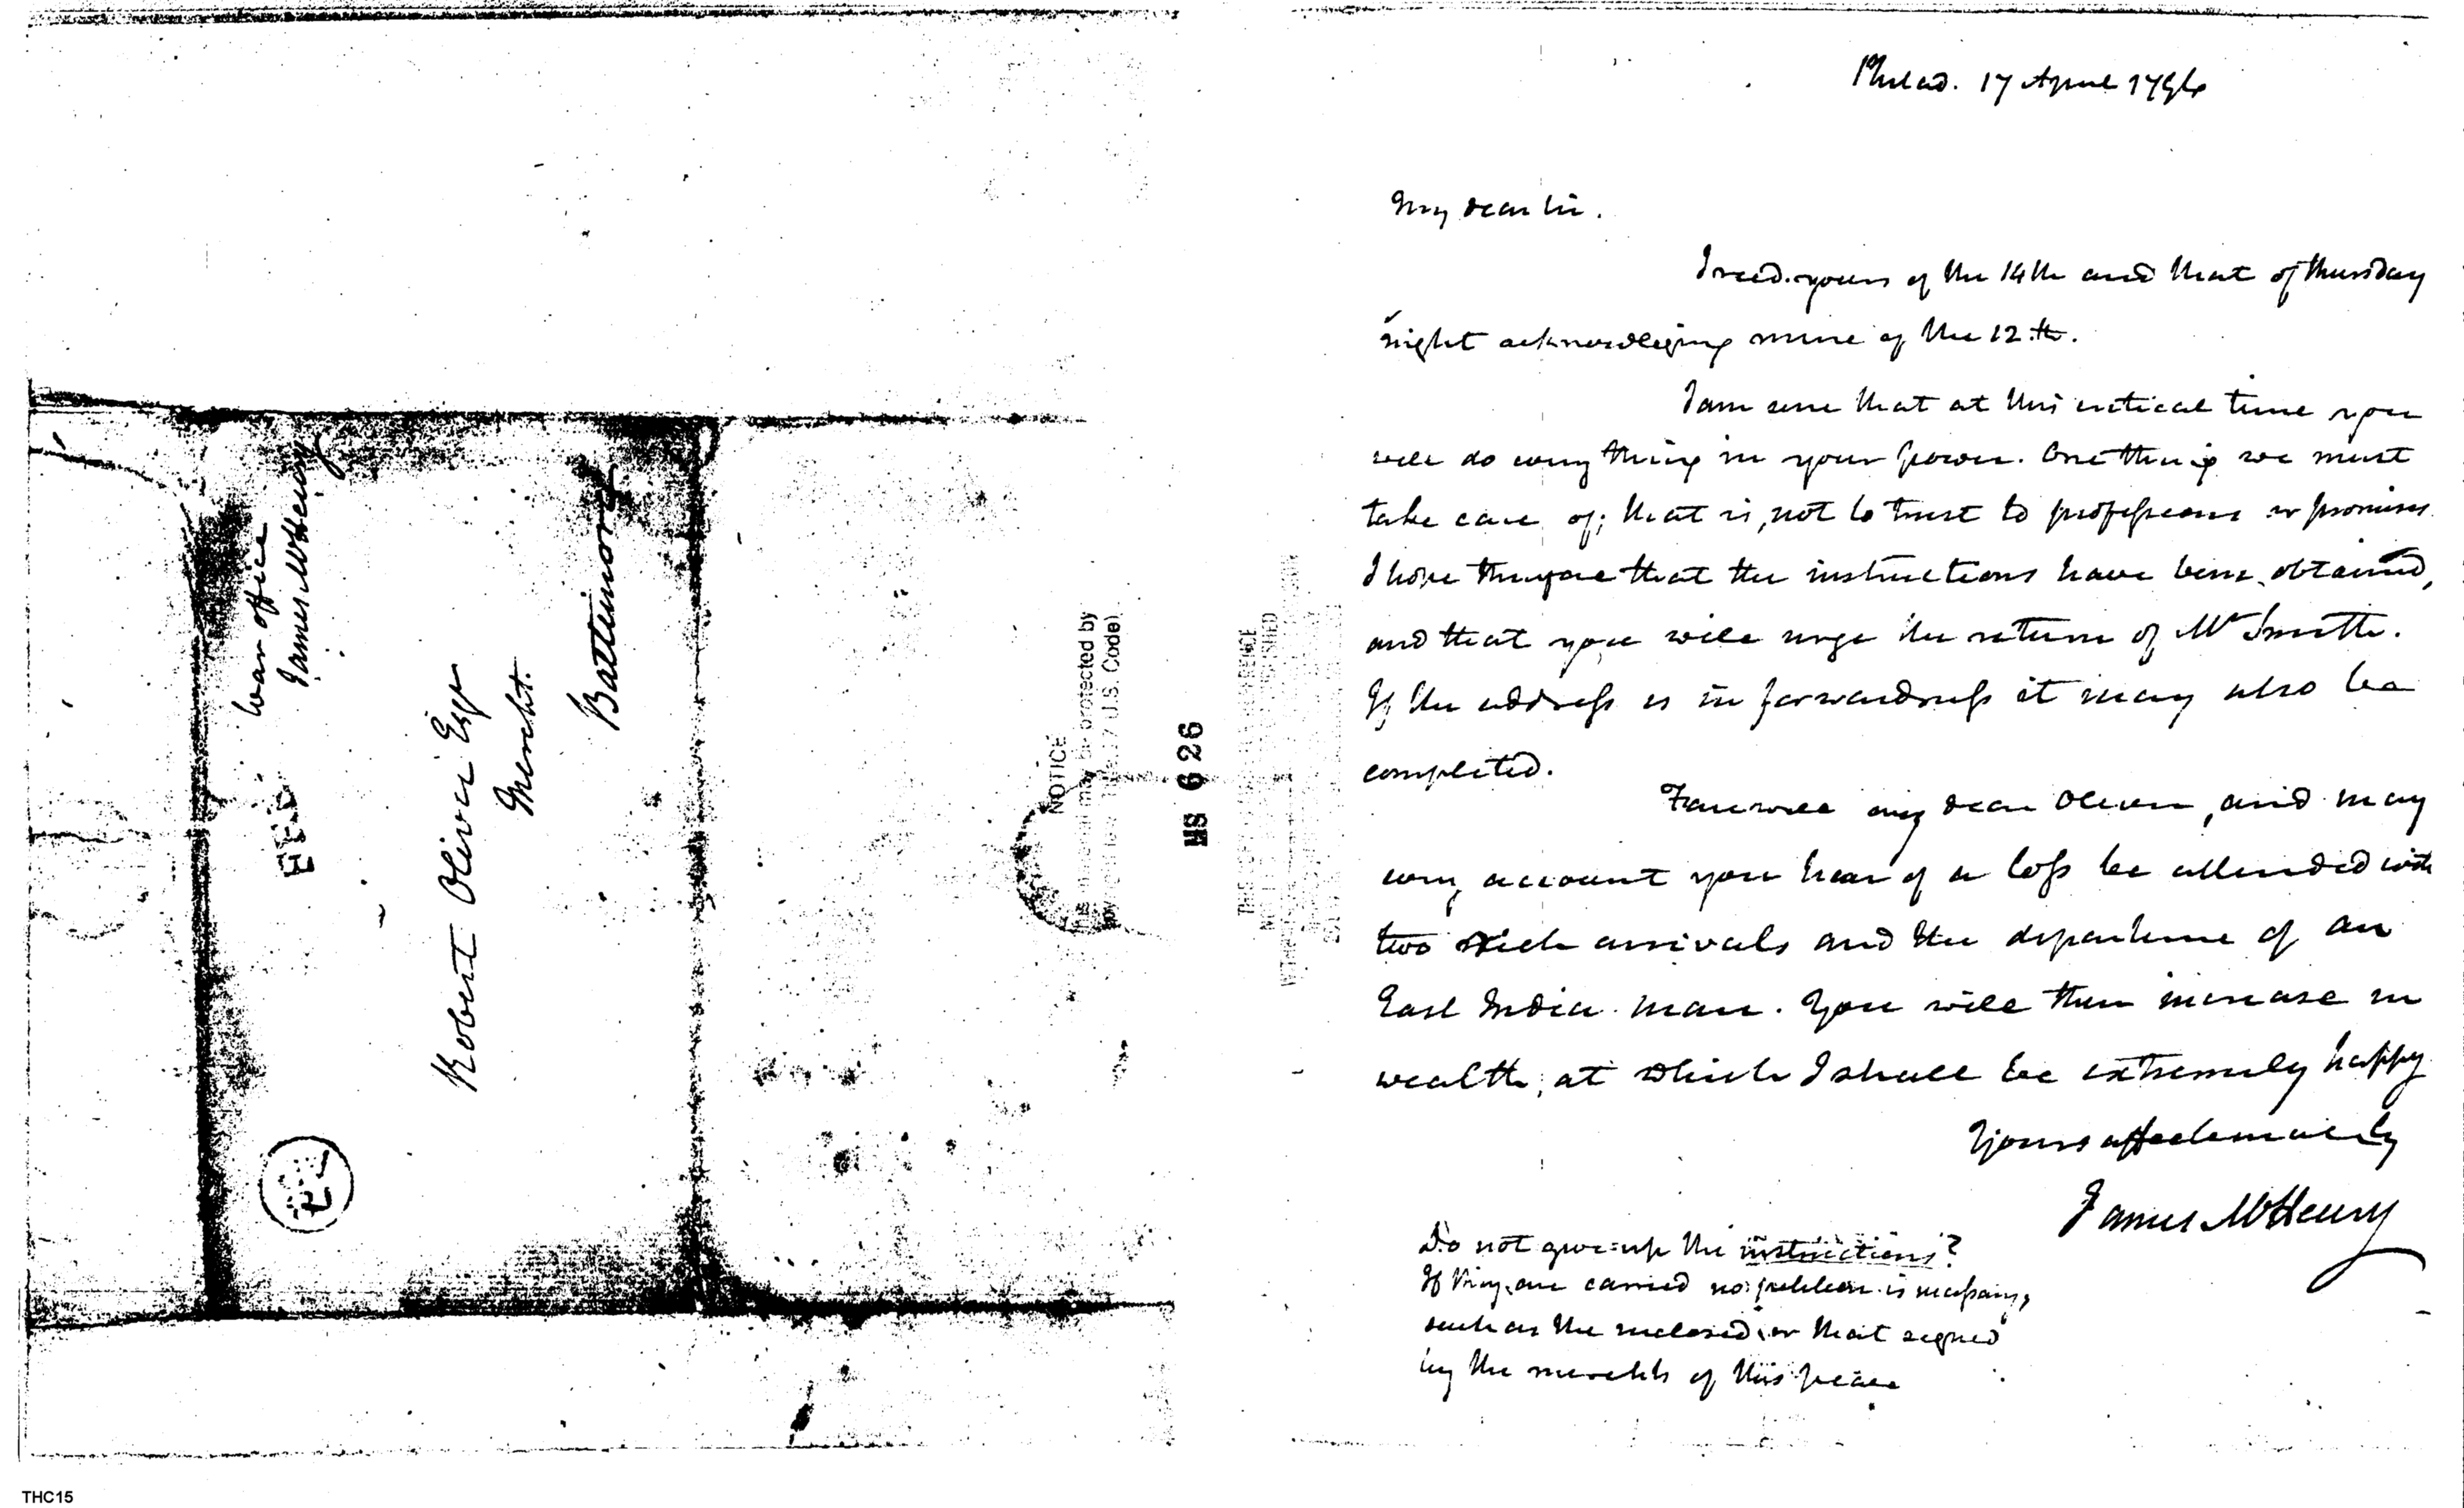 War office
James McHenry
Robert Oliver Esqr
Mercht.
Baltimore
FREE
NOTICE
material may be protected by
U.S. Code)
MS 626
Philad. 17 April 1796
My dear Sir.
I recd. yours of the 14th and that of thursday
night acknowledging mine of the 12.th.
I am sure that at this critical time you
will do every thing in your power. One thing we must
take care of; that is, not to trust to professions or promises.
I hope therefore that the instructions have been obtained,
and that you will urge the return of Mr Smith.
If the address is in forwardness it may also be
completed.
Farewell my dear Oliver, and may
every account you hear of a loss be attended with
two rich arrivals and the departure of an
East India man. You will then increase in
wealth, at which I shall be extremely happy
Yours affectionately
James McHenry
Do not give up the instructions?
If they are carried no petition is necessary,
such as the inclosed or that signed
by the merchts of this place
THC15